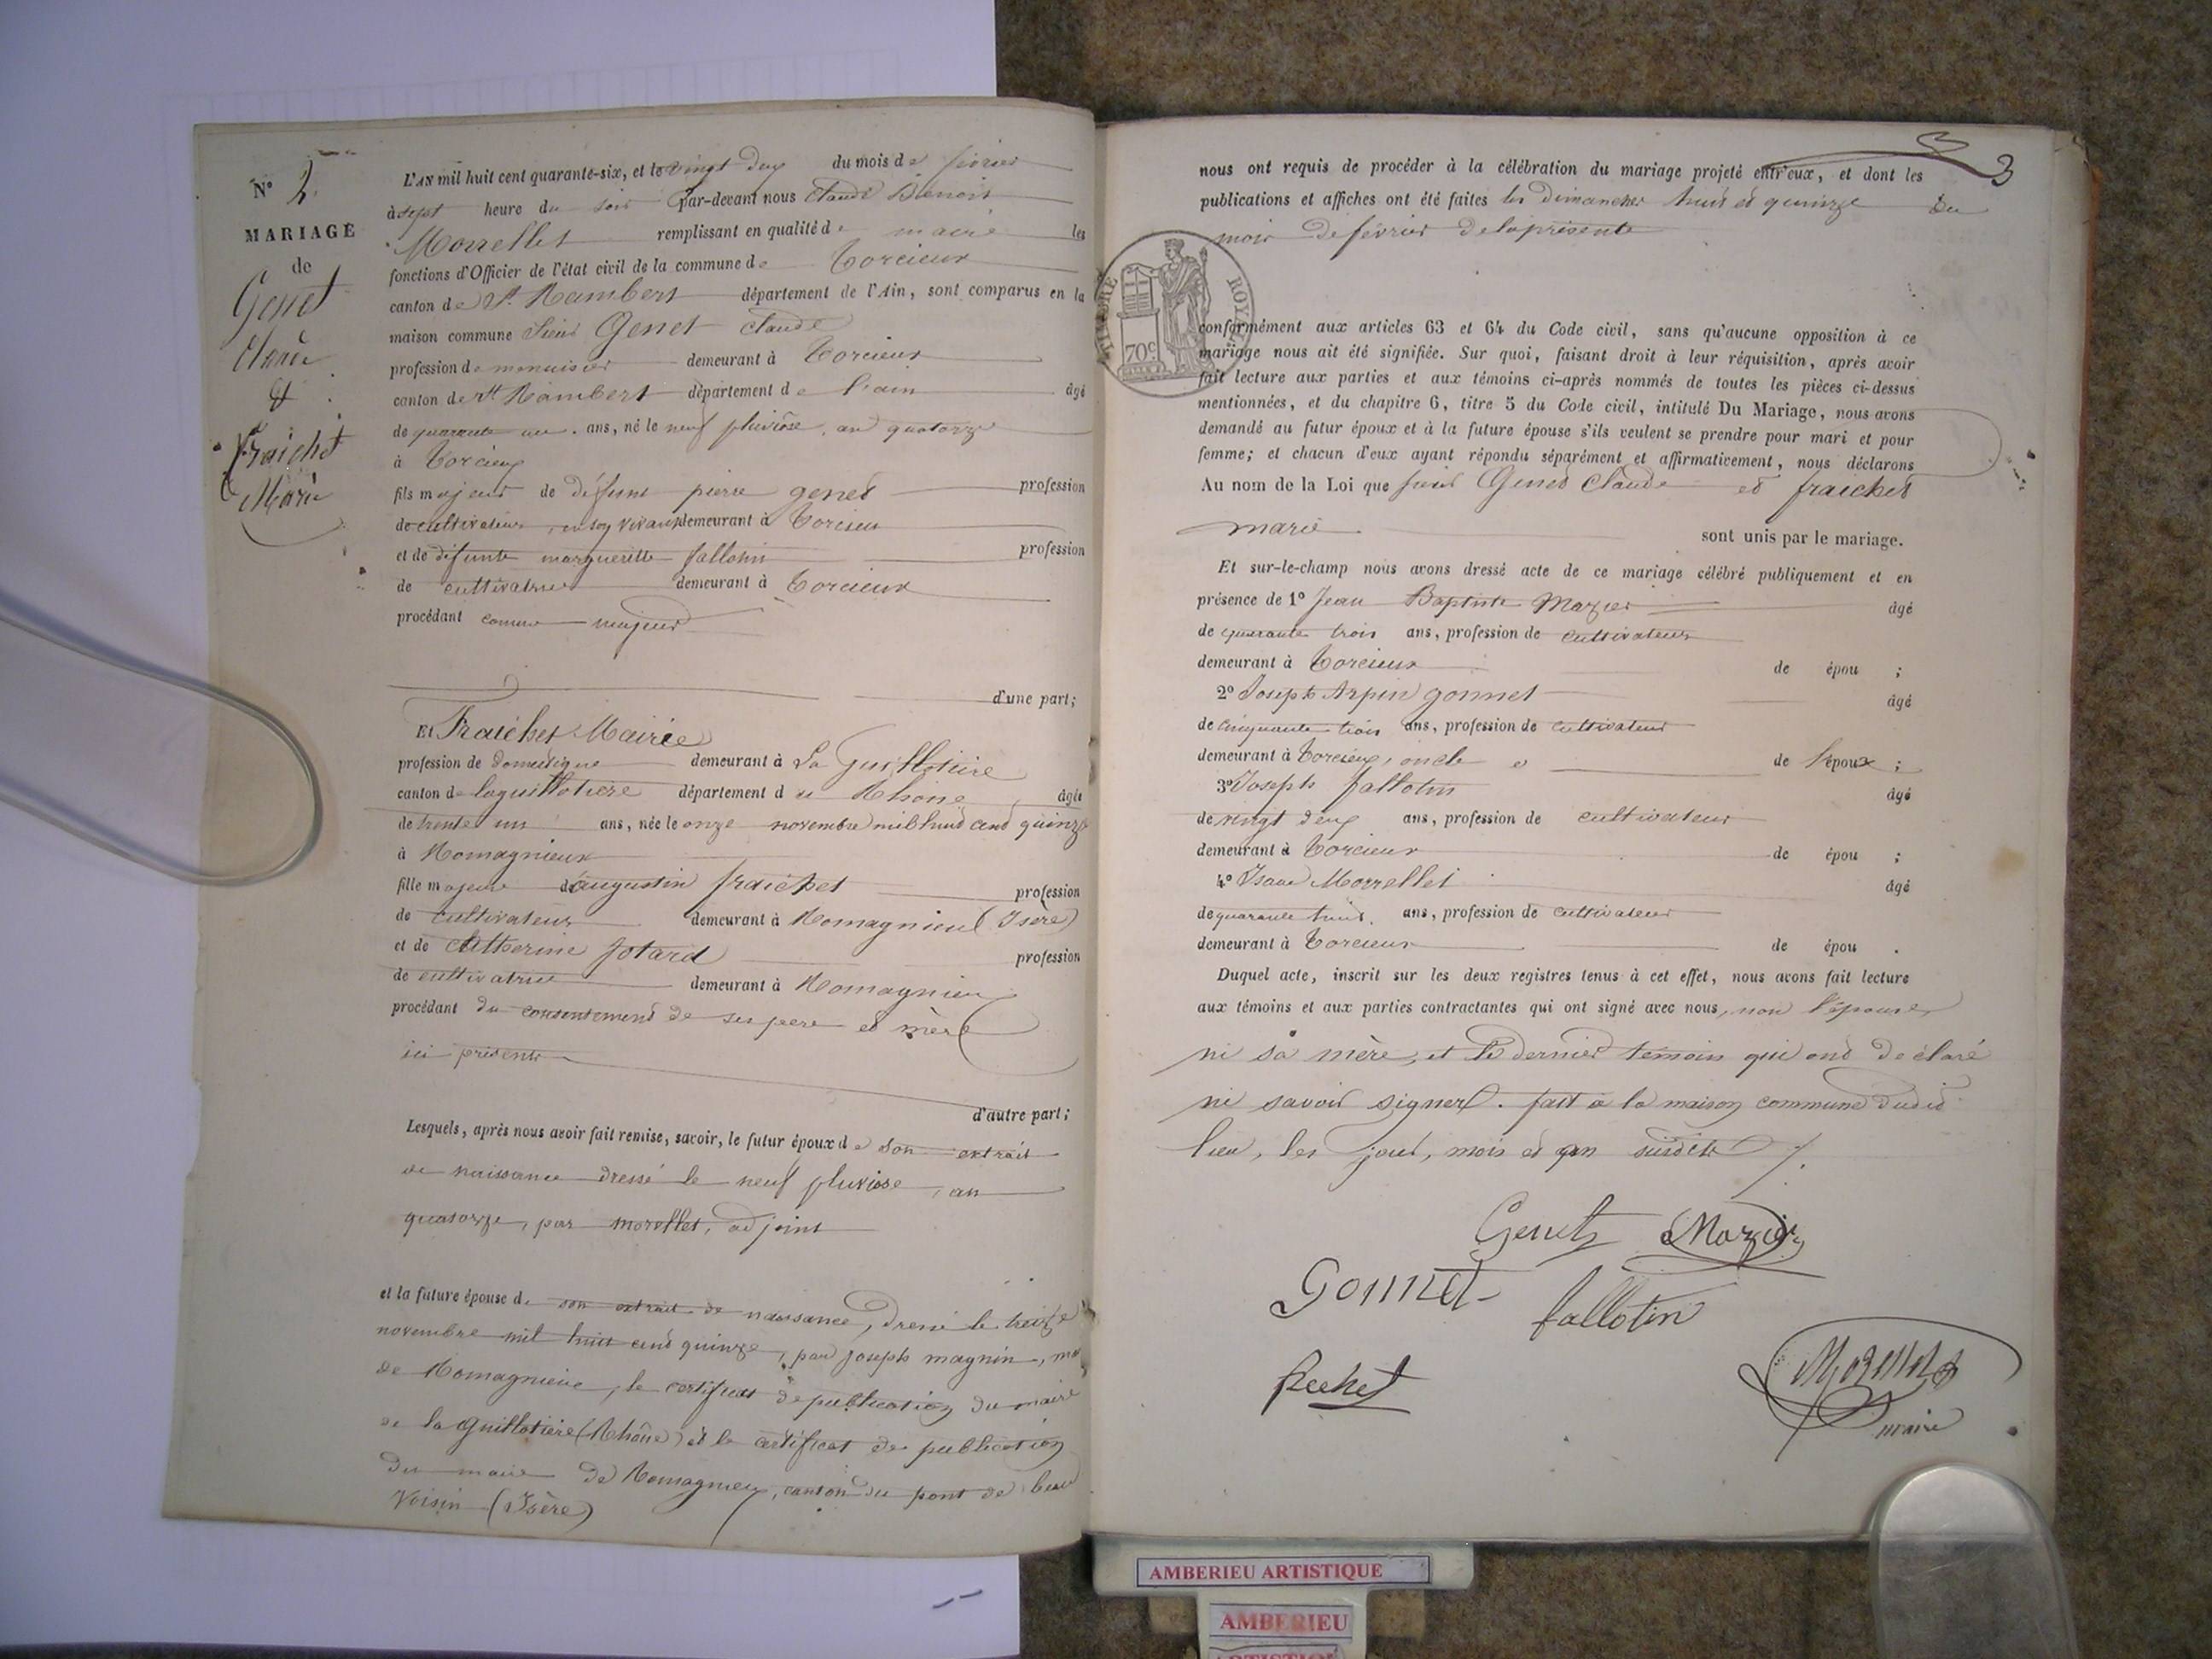 N° 2.
MARIAGE
de
Genet
Claude
&
Fraichet
Marie
L'AN mil huit cent quarante-six, et le vingt deux du mois de février
à sept heure du soir par-devant nous Claude Benoit
Morrellet remplissant en qualité de maire les
fonctions d'Officier de l'état civil de la commune de Torcieux
canton de St Rambert département de l'Ain, sont comparus en la
maison commune sieur Genet Claude
profession de menuisier demeurant à Torcieux
canton de St Rambert département de l'ain âgé
de quarante un . ans, né le neuf pluviôse, an quatorze
à Torcieux
fils majeur de défunt pierre genet profession
de cultivateur, en son vivant demeurant à Torcieu
et de défunte margueritte fallotin profession
de cultivatrice demeurant à Torcieux
procédant comme majeur
d'une part;
Et Fraichet Mairie
profession de domestique demeurant à La Guillotiere
canton de laguillotiere département du Rhone âgée
de trente un ans, née le onze novembre mil huit cent quinze
à Romagnieux
fille majeure d'augustin fraichet profession
de cultivateur demeurant à Romagnieu (Isère)
et de Catherine Jotard profession
de cultivatrice demeurant à Romagnieu
procédant du consentement de ses pere et mère
ici présents
d'autre part;
Lesquels, après nous avoir fait remise, savoir, le futur époux de son extrait
de naissance dressé le neuf pluviose, an
quatorze, par morellet, adjoint
et la future épouse de son extrait de naissance, dressé le treize
novembre mil huit cent quinze, par joseph magnin,
de Romagnieu, le certificat de publication du maire
de la Guillotiere (Rhône) et le certificat de publication
du maire de Romagnieu, canton du pont de beau
Voisin (Isère)
3
nous ont requis de procéder à la célébration du mariage projeté entr'eux, et dont les
publications et affiches ont été faites les dimanches huit et quinze du
mois de février de la présente
TIMBRE ROYAL
70c
conformément aux articles 63 et 64 du Code civil, sans qu'aucune opposition à ce
mariage nous ait été signifiée. Sur quoi, faisant droit à leur réquisition, après avoir
fait lecture aux parties et aux témoins ci-après nommés de toutes les pièces ci-dessus
mentionnées, et du chapitre 6, titre 5 du Code civil, intitulé Du Mariage, nous avons
demandé au futur époux et à la future épouse s'ils veulent se prendre pour mari et pour
femme; et chacun d'eux ayant répondu séparément et affirmativement, nous déclarons
Au nom de la Loi que sieur Genet Claude et fraichet
marie sont unis par le mariage.
Et sur-le-champ nous avons dressé acte de ce mariage célébré publiquement et en
présence de 1° Jean Baptiste Mazier âgé
de quarante trois ans, profession de cultivateur
demeurant à Torcieux de épou ;
2° Joseph Arpin gonnet âgé
de cinquante trois ans, profession de cultivateur
demeurant à Torcieux, oncle de l'époux ;
3° Joseph fallotin âgé
de vingt deux ans, profession de cultivateur
demeurant à Torcieux de épou ;
4° Isaac Morrellet âgé
de quarante huit. ans, profession de cultivateur
demeurant à Torcieux de épou .
Duquel acte, inscrit sur les deux registres tenus à cet effet, nous avons fait lecture
aux témoins et aux parties contractantes qui ont signé avec nous, non l'épouse,
ni sa mère, et le dernier témoin qui ont déclaré
ne savoir signer. fait à la maison commune dudit
lieu, les jour, mois et an susdits
Genet Mazier
Gonnet
fallotin
frechet
Morellet
maire
AMBERIEU ARTISTIQUE
AMBERIEU
ARTISTIQUE